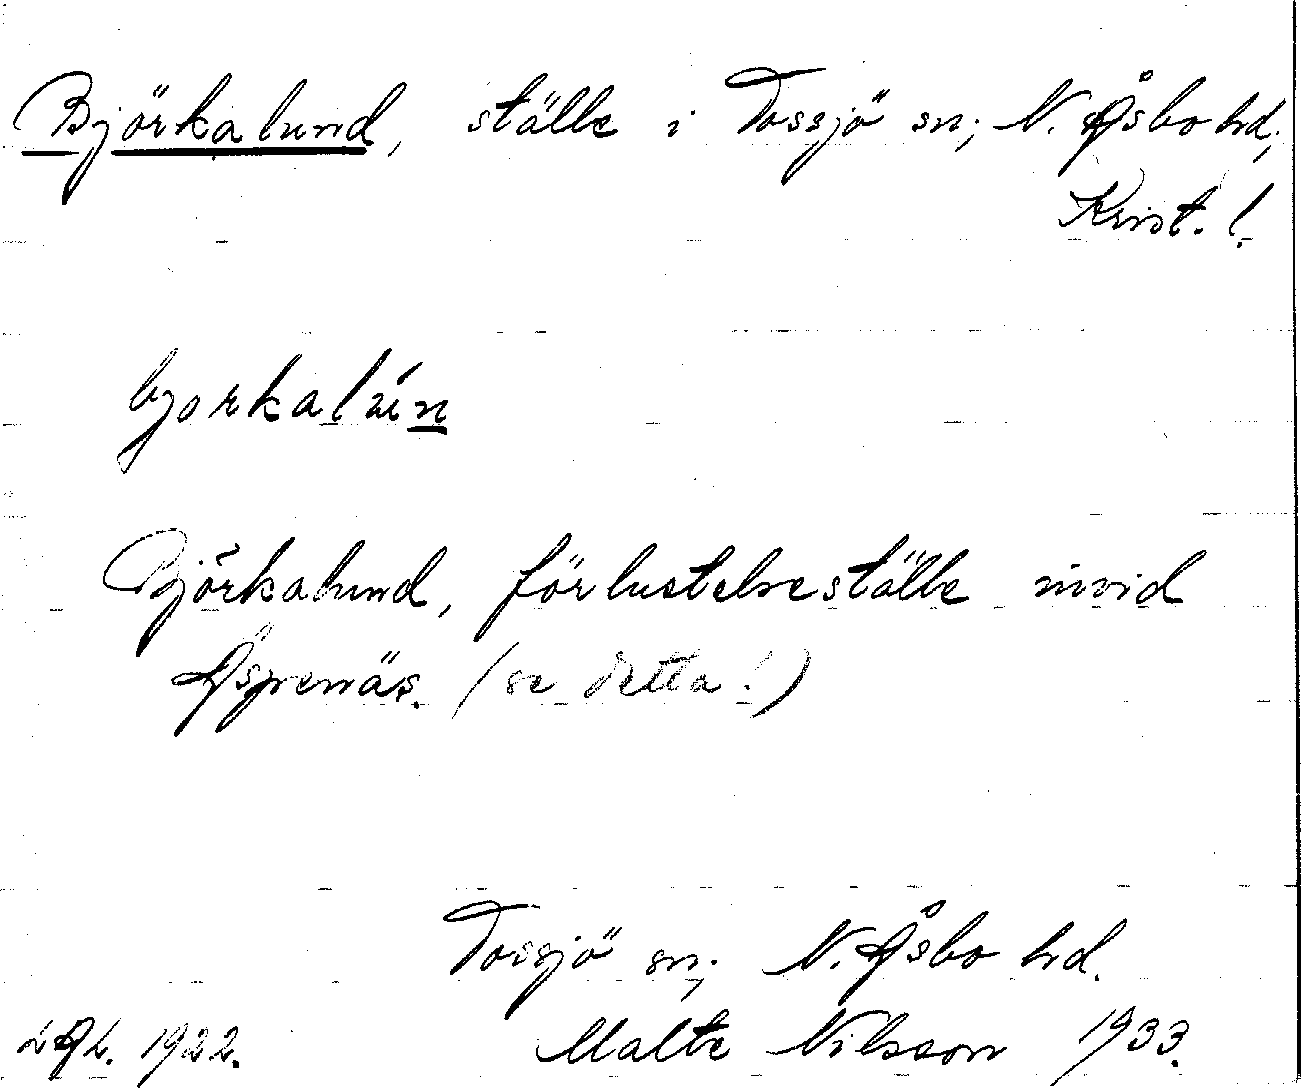 Björkalund, ställe i Tossjö sn; N. Åsbo hd;
Krist. l.
bjorkalún
Björkalund, förlustelseställe invid
Åsprenäs. (se detta!)
Tossjö sn; N. Åsbo hd.
1922. Malte Nilsson 1933.